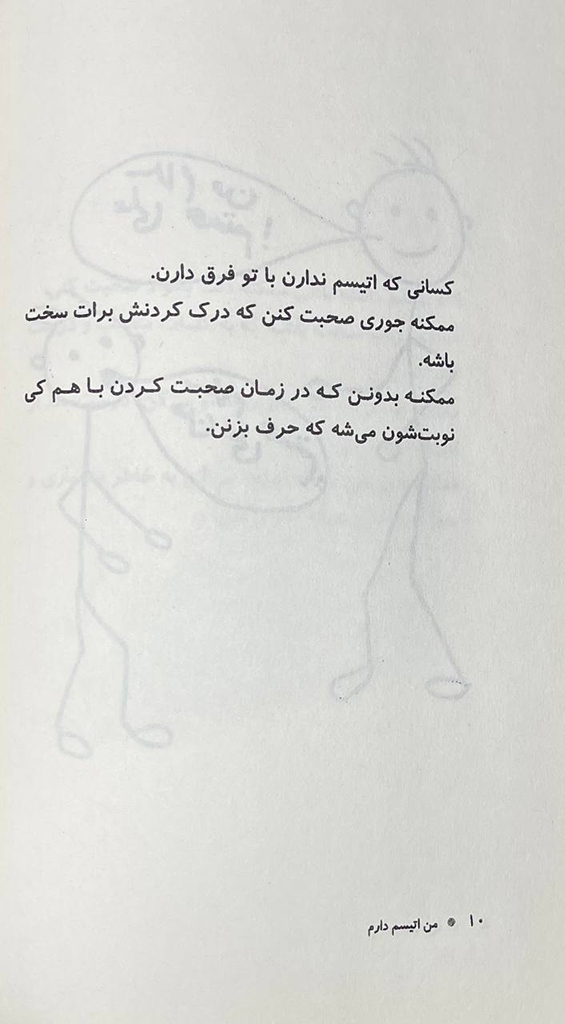 کسانی که اتیسم ندارن با تو فرق دارن.
ممکنه جوری صحبت کنن که درک کردنش برات سخت
باشه.
ممکنه بدونن که در زمان صحبت کردن با هم کی
نوبت‌شون می‌شه که حرف بزنن.
۱۰ ● من اتیسم دارم